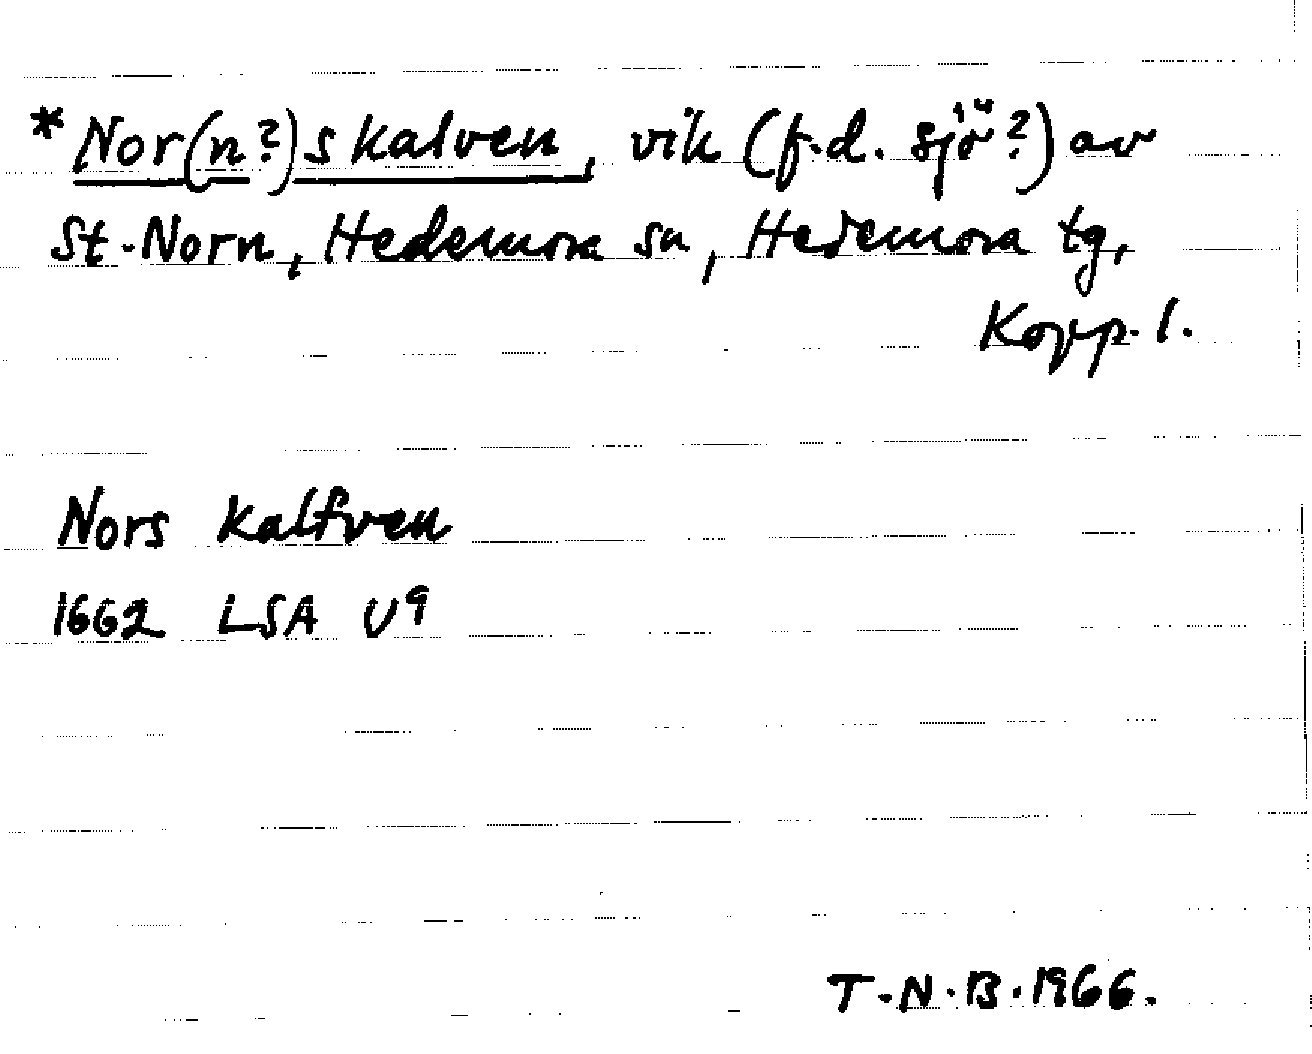 *Nor(n?)skalven, vik (f.d. sjö?) av
St.Norn, Hedemora sn, Hedemora tg,
Kopp. l.
Nors Kalfven
1662 LSA U9
T.N.B. 1966.